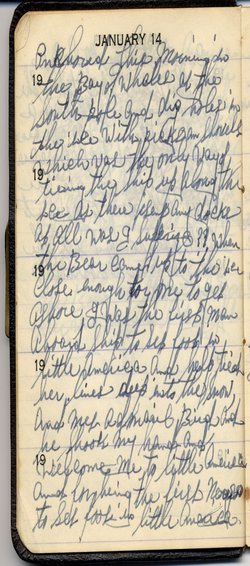 JANUARY 14
Anchored This Morning in
19 the Bay of Whales at the
South Pole and dug holes in
the ice with picks and shovels
which was the only way of
19 tieing the ship up along the
ice as there isent any docks
at All was I supprised ?? When
19 the Bear came up to the ice
close enough for me to get
Ashore I was the first man
Aboard Ship to set foot in
19 little America And help tie
her lines deep into the snow
And met Admiral Byrd and
he shook my hand and
19 welcomed Me to little America
and for being the first Negro
to set foot in little America